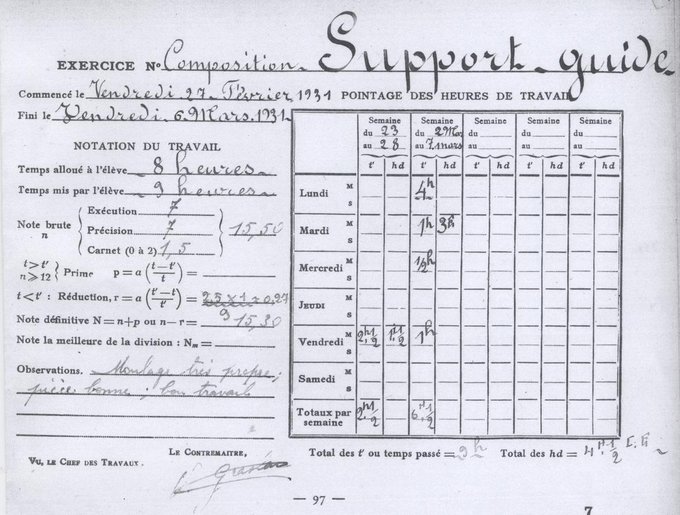 EXERCICE No Composition. Support-guide
Commencé le Vendredi 27 Février 1931
Fini le Vendredi 6 Mars 1931
POINTAGE DES HEURES DE TRAVAIL
NOTATION DU TRAVAIL
Temps alloué à l'élève 8 heures.
Temps mis par l'élève 9 heures.
Note brute n
Exécution 7
Précision 7
Carnet (0 à 2) 1,5
15,50
t > t'
n ≥ 12
Prime p = a (t-t'/t) =
t < t' : Réduction, r = a (t'-t/t') = 2,5 x 1 = 0,27
9
Note définitive N = n + p ou n - r = 15,30
Note la meilleure de la division : Nm =
Observations. Montage très propre;
pièce bonne; bon travail
VU, LE CHEF DES TRAVAUX.
LE CONTREMAITRE,
Semaine Semaine Semaine Semaine Semaine
du 23 du 2 Mars du du du
au 28 au 7 mars au au au
t' hd t' hd t' hd t' hd t' hd
Lundi M S 4h
Mardi M S 1h 3h
Mercredi M S 1/2h
JEUDI M S
Vendredi M S 2h1/2 1h1/2 1h
Samedi M S
Totaux par semaine 2h1/2 6h1/2
Total des t' ou temps passé = 9h Total des hd = 4h1/2
— 97 —
7